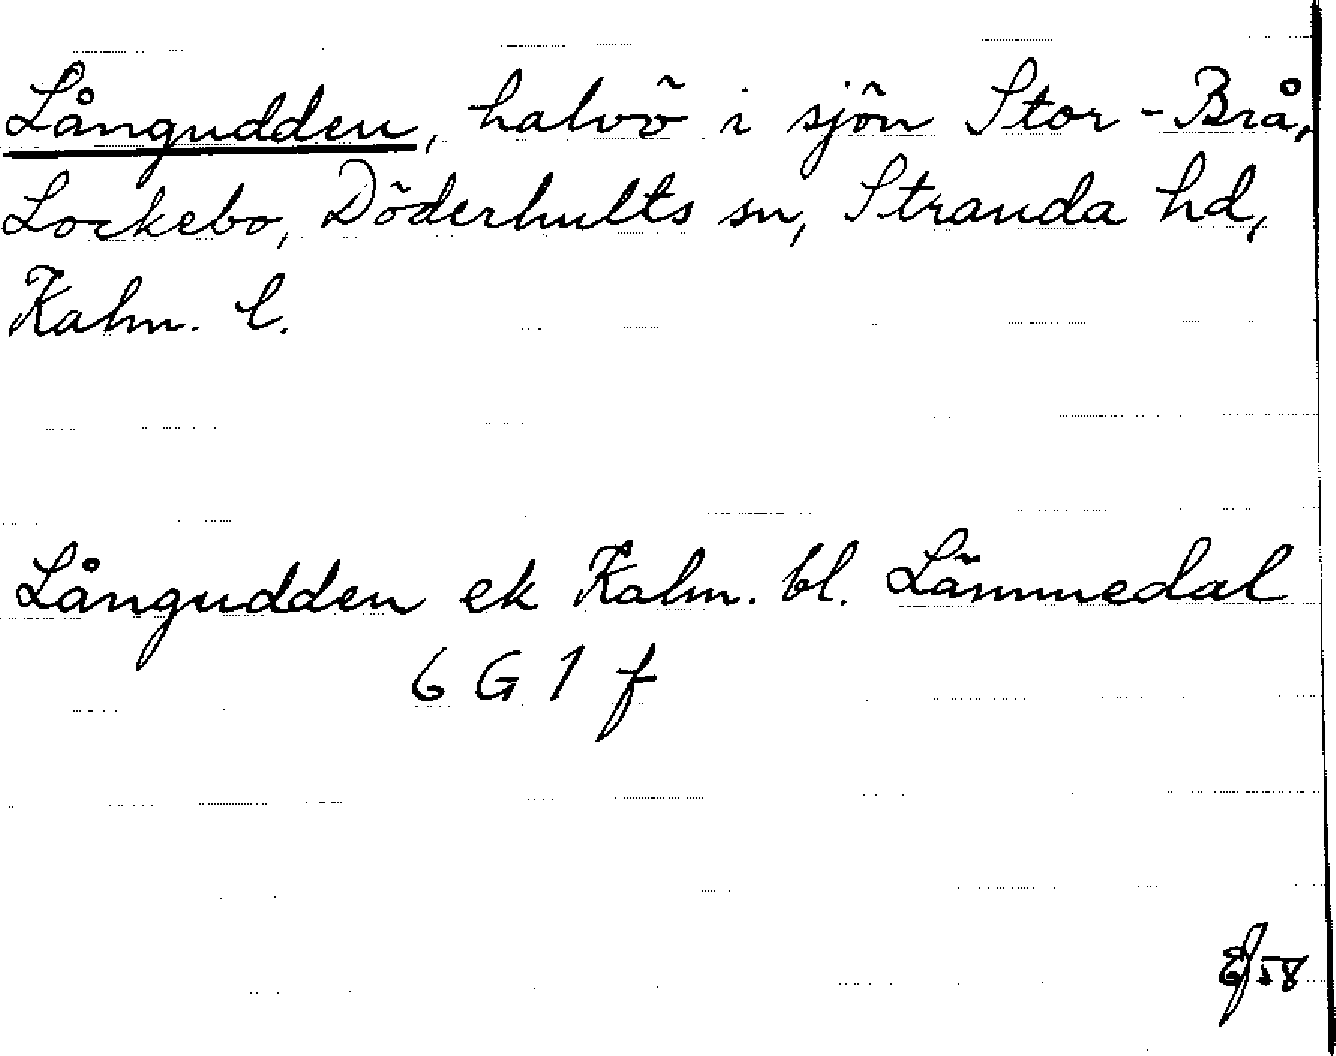 Långudden, halvö i sjön Stor-Brå,
Lockebo, Döderhults sn, Stranda hd,
Kalm. l.
Långudden ek Kalm. bl. Lämmedal
6 G 1 f
58